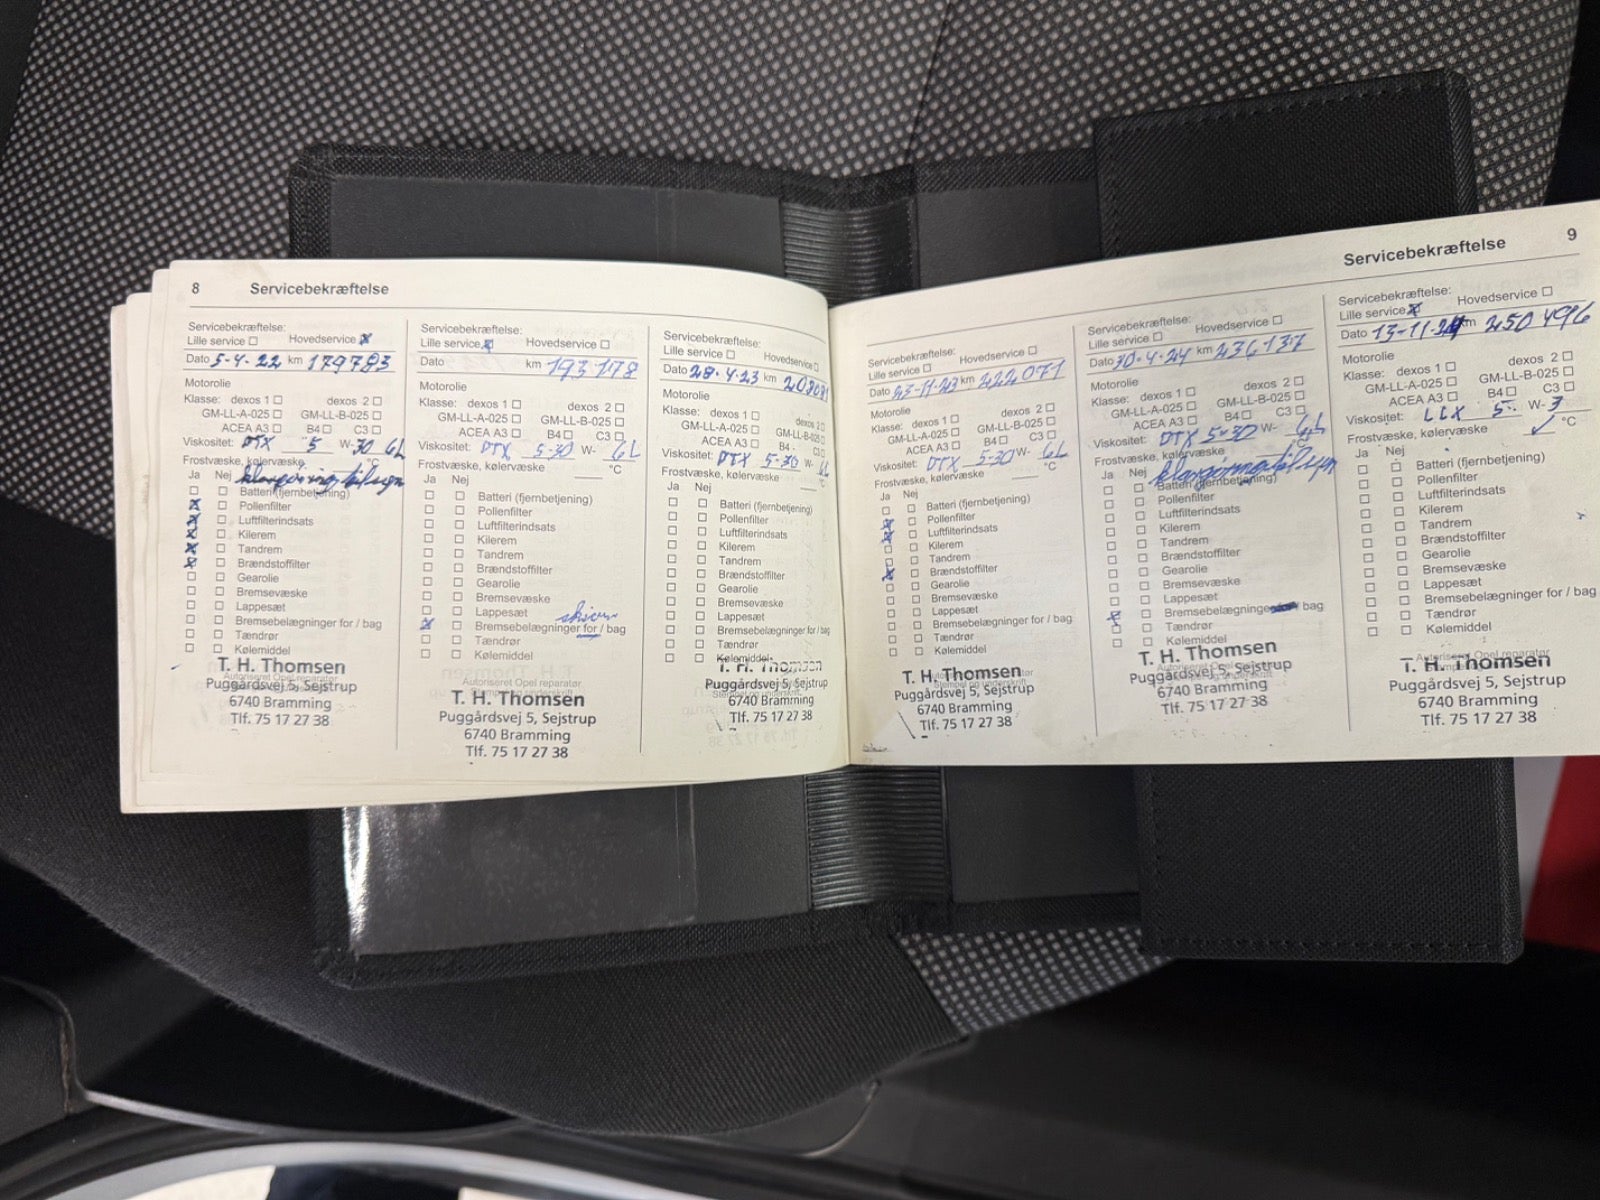 8 Servicebekræftelse
Servicebekræftelse:
Lille service ☐ Hovedservice ☒
Dato 5-4-22 km 179783
Motorolie
Klasse: dexos 1 ☐ dexos 2 ☐
GM-LL-A-025 ☐ GM-LL-B-025 ☐
ACEA A3 ☐ B4 ☐ C3 ☐
Viskositet: DTX 5 W-30 6L
Frostvæske, kølervæske °C
Ja Nej klargøring til syn
☐ ☐ Batteri (fjernbetjening)
☒ ☐ Pollenfilter
☒ ☐ Luftfilterindsats
☒ ☐ Kilerem
☒ ☐ Tandrem
☒ ☐ Brændstoffilter
☐ ☐ Gearolie
☐ ☐ Bremsevæske
☐ ☐ Lappesæt
☐ ☐ Bremsebelægninger for / bag
☐ ☐ Tændrør
☐ ☐ Kølemiddel
T. H. Thomsen
Autoriseret Opel reparatør
Puggårdsvej 5, Sejstrup
6740 Bramming
Tlf. 75 17 27 38
Servicebekræftelse:
Lille service ☒ Hovedservice ☐
Dato km 193178
Motorolie
Klasse: dexos 1 ☐ dexos 2 ☐
GM-LL-A-025 ☐ GM-LL-B-025 ☐
ACEA A3 ☐ B4 ☐ C3 ☐
Viskositet: DTX 5-30 W- 6L
Frostvæske, kølervæske °C
Ja Nej
☐ ☐ Batteri (fjernbetjening)
☐ ☐ Pollenfilter
☐ ☐ Luftfilterindsats
☐ ☐ Kilerem
☐ ☐ Tandrem
☐ ☐ Brændstoffilter
☐ ☐ Gearolie
☐ ☐ Bremsevæske
☐ ☐ Lappesæt skiver
☒ ☐ Bremsebelægninger for / bag
☐ ☐ Tændrør
☐ ☐ Kølemiddel
Autoriseret Opel reparatør
T. H. Thomsen
Puggårdsvej 5, Sejstrup
6740 Bramming
Tlf. 75 17 27 38
Servicebekræftelse:
Lille service ☐ Hovedservice ☐
Dato 28-4-23 km
Motorolie
Klasse: dexos 1 ☐ dexos 2 ☐
GM-LL-A-025 ☐ GM-LL-B-025
ACEA A3 ☐ B4 C3 ☐
Viskositet: DTX 5-30 W-
Frostvæske, kølervæske °C
Ja Nej
☐ ☐ Batteri (fjernbetjening)
☐ ☐ Pollenfilter
☐ ☐ Luftfilterindsats
☐ ☐ Kilerem
☐ ☐ Tandrem
☐ ☐ Brændstoffilter
☐ ☐ Gearolie
☐ ☐ Bremsevæske
☐ ☐ Lappesæt
☐ ☐ Bremsebelægninger for / bag
☐ ☐ Tændrør
☐ ☐ Kølemiddel
T. H. Thomsen
Puggårdsvej 5, Sejstrup
6740 Bramming
Tlf. 75 17 27 38
Servicebekræftelse 9
Servicebekræftelse:
Lille service ☐ Hovedservice ☐
Dato 23-11-23 km 222071
Motorolie
Klasse: dexos 1 ☐ dexos 2 ☐
GM-LL-A-025 ☐ GM-LL-B-025 ☐
ACEA A3 ☐ B4 ☐ C3 ☐
Viskositet: DTX 5-30 W- 6L
Frostvæske, kølervæske °C
Ja Nej
☐ ☐ Batteri (fjernbetjening)
☒ ☐ Pollenfilter
☒ ☐ Luftfilterindsats
☐ ☐ Kilerem
☐ ☐ Tandrem
☒ ☐ Brændstoffilter
☐ ☐ Gearolie
☐ ☐ Bremsevæske
☐ ☐ Lappesæt
☐ ☐ Bremsebelægninger for / bag
☐ ☐ Tændrør
☐ ☐ Kølemiddel
T. H. Thomsen
Puggårdsvej 5, Sejstrup
6740 Bramming
Tlf. 75 17 27 38
Servicebekræftelse:
Lille service ☐ Hovedservice ☐
Dato 30-4-24 km 236137
Motorolie
Klasse: dexos 1 ☐ dexos 2 ☐
GM-LL-A-025 ☐ GM-LL-B-025 ☐
ACEA A3 ☐ B4 ☐ C3 ☐
Viskositet: DTX 5-30 W- 6L
Frostvæske, kølervæske °C
Ja Nej klargøring til syn
☐ ☐ Batteri (fjernbetjening)
☐ ☐ Pollenfilter
☐ ☐ Luftfilterindsats
☐ ☐ Kilerem
☐ ☐ Tandrem
☐ ☐ Brændstoffilter
☐ ☐ Gearolie
☐ ☐ Bremsevæske
☐ ☐ Lappesæt
☒ ☐ Bremsebelægninger bag
☐ ☐ Tændrør
☐ ☐ Kølemiddel
T. H. Thomsen
Autoriseret Opel reparatør
Puggårdsvej 5, Sejstrup
6740 Bramming
Tlf. 75 17 27 38
Servicebekræftelse:
Lille service ☒ Hovedservice ☐
Dato 13-11-24 km 250496
Motorolie
Klasse: dexos 1 ☐ dexos 2 ☐
GM-LL-A-025 ☐ GM-LL-B-025 ☐
ACEA A3 ☐ B4 ☐ C3 ☐
Viskositet: LLX 5- W-3
Frostvæske, kølervæske ✓ °C
Ja Nej
☐ ☐ Batteri (fjernbetjening)
☐ ☐ Pollenfilter
☐ ☐ Luftfilterindsats
☐ ☐ Kilerem
☐ ☐ Tandrem
☐ ☐ Brændstoffilter
☐ ☐ Gearolie
☐ ☐ Bremsevæske
☐ ☐ Lappesæt
☐ ☐ Bremsebelægninger for / bag
☐ ☐ Tændrør
☐ ☐ Kølemiddel
Autoriseret Opel reparatør
T. H. Thomsen
Puggårdsvej 5, Sejstrup
6740 Bramming
Tlf. 75 17 27 38